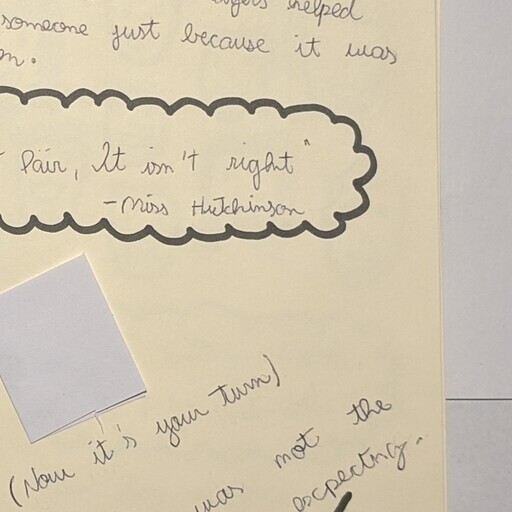 helped
someone just because it was
Pair, It isn't right"
-Miss Hutchinson
(Now it's your turn)
was not the
expecting.